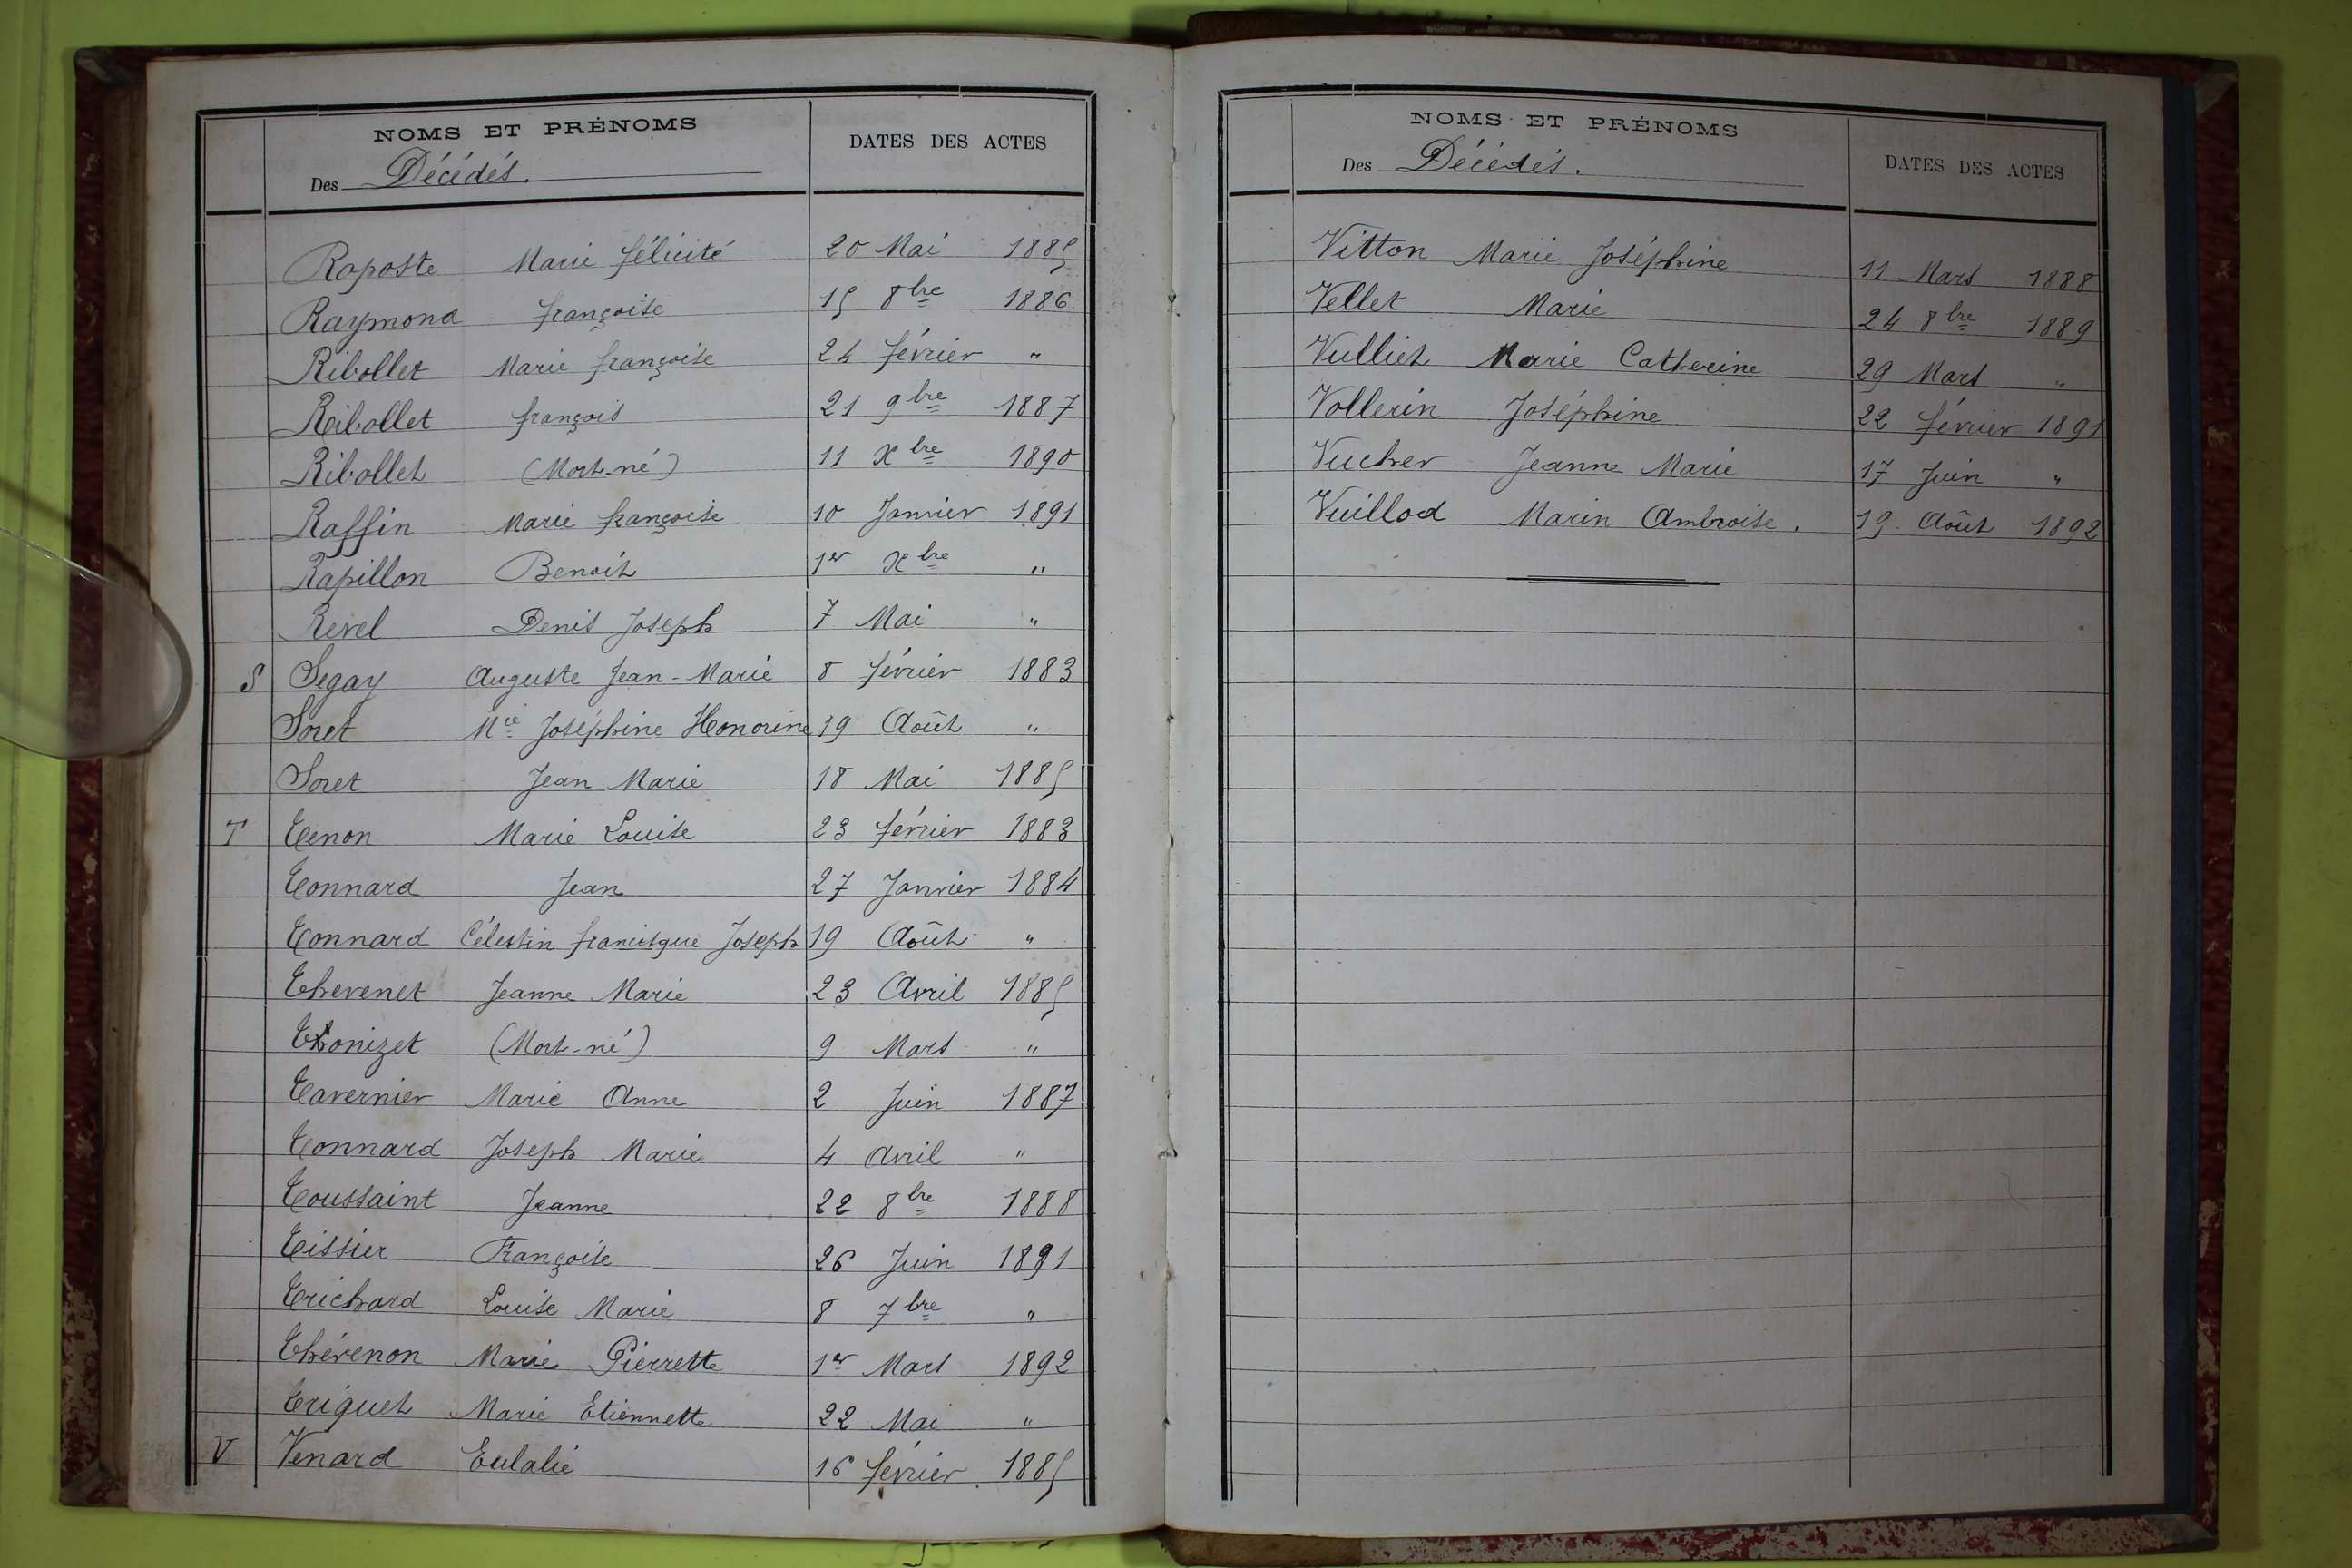 NOMS ET PRÉNOMS
DATES DES ACTES
Des Décédés.
Raposte Marie félicité 20 Mai 1885
Raymond françoise 15 8bre 1886
Ribollet Marie françoise 24 février "
Ribollet françois 21 9bre 1887
Ribollet (Mort-né) 11 Xbre 1890
Raffin Marie françoise 10 Janvier 1891
Rapillon Benoit 1er Xbre "
Revel Denis Joseph 7 Mai "
S Segay Auguste Jean-Marie 8 février 1883
Soret Mie Joséphine Honorine 19 Août "
Soret Jean Marie 18 Mai 1885
T Tenon Marie Louise 23 février 1883
Tonnard Jean 27 Janvier 1884
Tonnard Célestin francisque Joseph 19 Août "
Thevenet Jeanne Marie 23 Avril 1885
Thonizet (Mort-né) 9 Mars "
Tavernier Marie Anne 2 Juin 1887
Tonnard Joseph Marie 4 Avril "
Toussaint Jeanne 22 8bre 1888
Tissier Françoise 26 Juin 1891
Trichard Louise Marie 8 7bre "
Thévenon Marie Pierrette 1er Mars 1892
Triquet Marie Etiennette 22 Mai "
V Venard Eulalie 16 février 1885
NOMS ET PRÉNOMS
DATES DES ACTES
Des Décédés.
Vitton Marie Joséphine 11 Mars 1888
Vellet Marie 24 8bre 1889
Vulliet Marie Catherine 29 Mars "
Vollerin Joséphine 22 février 1891
Vucher Jeanne Marie 17 Juin "
Vuillod Marin Ambroise. 19 Août 1892